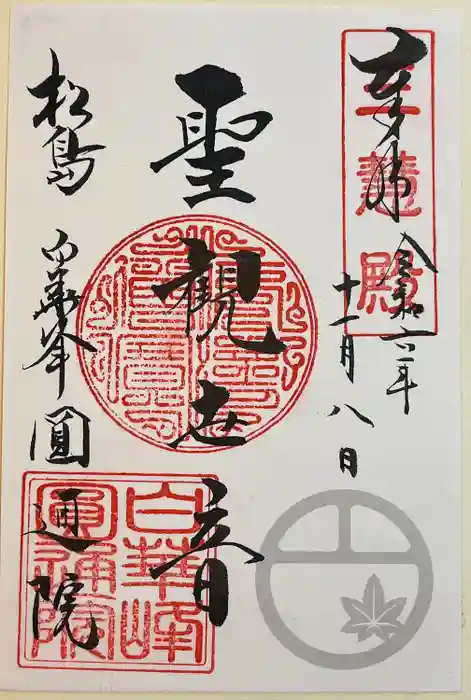 奉拝
三慧殿
令和六年
十一月八日
聖観世音
松島 白華峯 圓通院
白華峰
圓通院